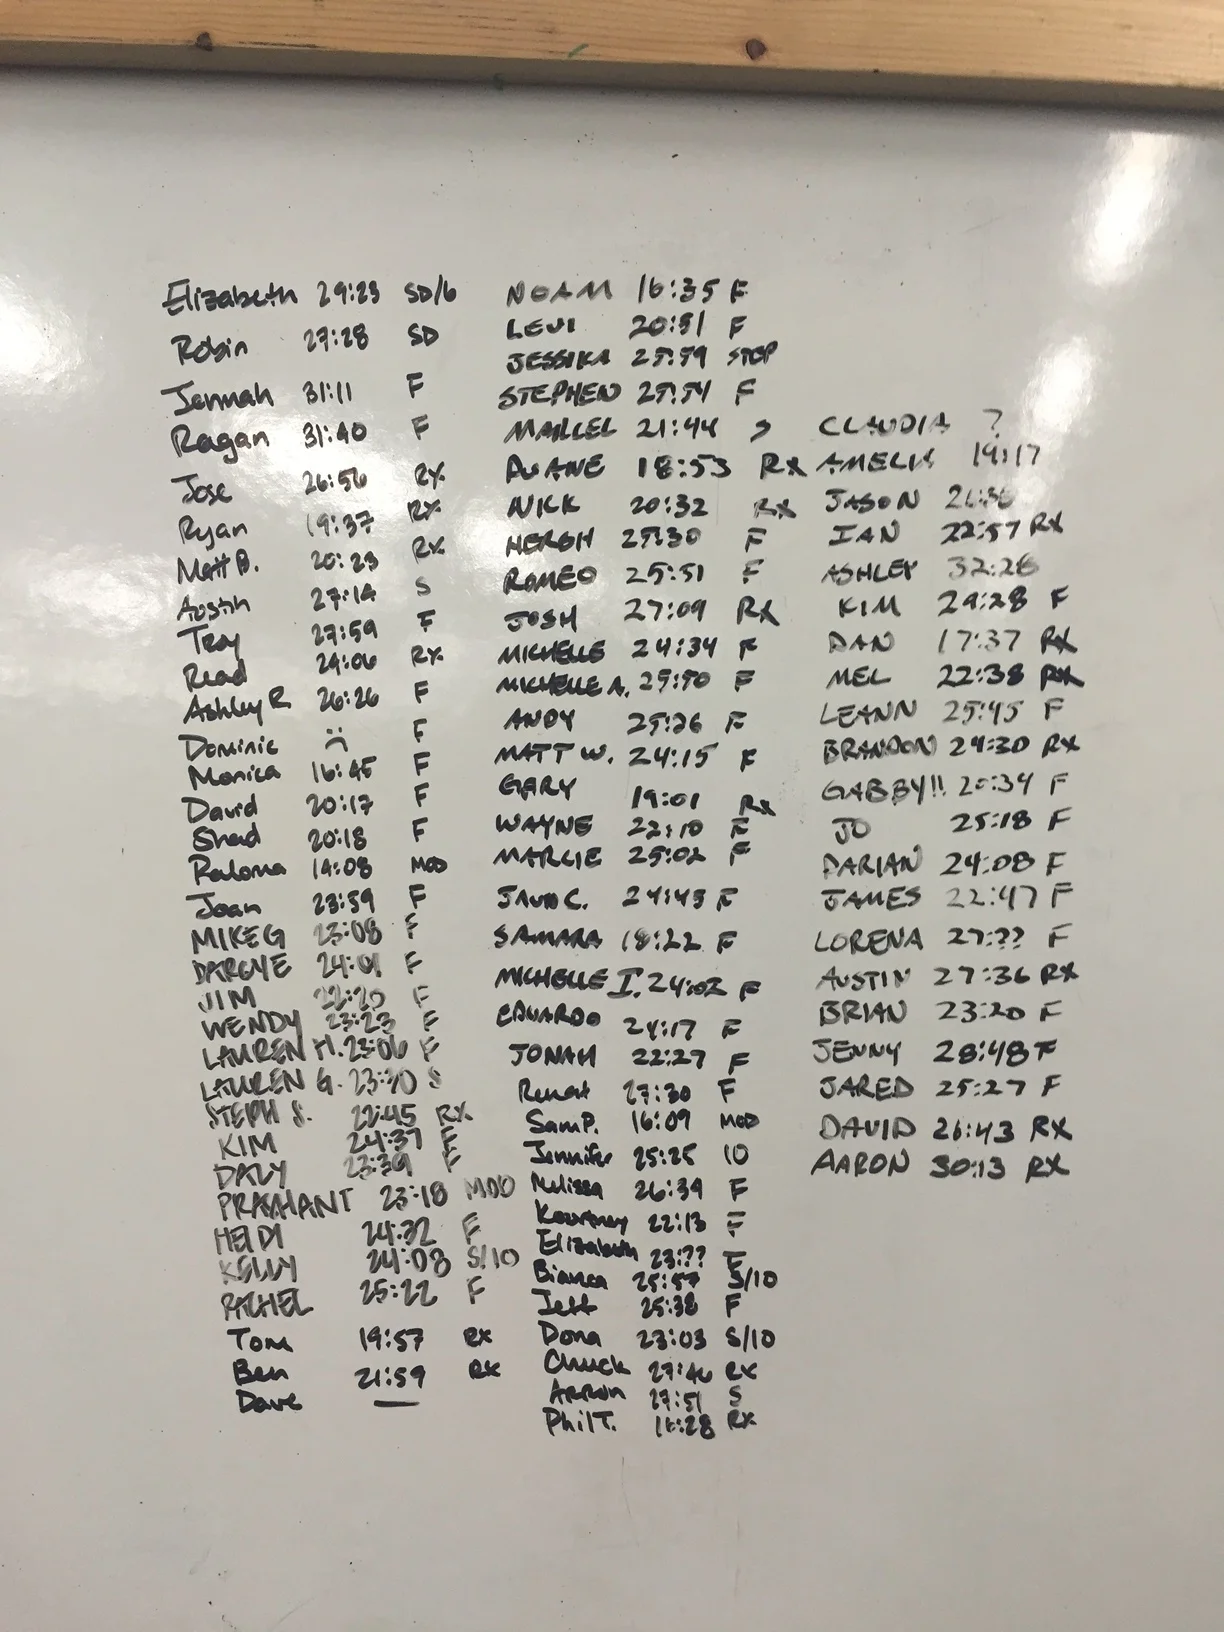 Elizabeth 29:23 SD/6
Robin 27:28 SD
Jannah 31:11 F
Ragan 31:40 F
Jose 26:56 RX
Ryan 19:37 RX
Matt B. 20:23 RX
Austin 27:14 S
Troy 27:59 F
Read 24:06 RX
Ashley R 26:26 F
Dominic :( F
Monica 16:45 F
David 20:17 F
Shad 20:18 F
Paloma 14:08 MOD
Joan 23:59 F
MIKE G 23:08 F
DARCYE 24:01 F
JIM 22:20 F
WENDY 23:23 F
LAUREN M. 23:06 F
LAUREN G. 23:30 S
STEPH S. 22:45 RX
KIM 24:37 F
DALY 23:39 F
PRASHANT 23:18 MOD
HEIDI 24:32 F
KELLY 24:08 S/10
RACHEL 25:22 F
Tom 19:57 RX
Ben 21:59 RX
Dave —
NOAM 16:35 F
LEVI 20:51 F
JESSIKA 25:59 STEP
STEPHEN 25:54 F
MARCEL 21:44 S
DUANE 18:53 RX
NICK 20:32 RX
HERSH 25:30 F
ROMEO 25:51 F
JOSH 27:09 RX
MICHELLE 24:34 F
MICHELLE A. 25:50 F
ANDY 25:26 F
MATT W. 24:15 F
GARY 19:01 RX
WAYNE 22:10 F
MARCIE 25:02 F
C. 24:43 F
SAMARA 18:22 F
MICHELLE I. 24:02 F
EDUARDO 24:17 F
JONAH 22:27 F
Renat 27:30 F
Sam P. 16:09 MOD
Jennifer 25:25 10
Melissa 26:39 F
Kourtney 22:13 F
Elizabeth 23:?? F
Bianca 25:57 S/10
Jeff 25:38 F
Dona 23:03 S/10
Chuck 27:46 RX
Arron 27:51 S
Phil T. 16:28 RX
CLAUDIA ?
AMELIA 19:17
JASON
IAN 22:57 RX
ASHLEY 32:26
KIM 29:28 F
DAN 17:37 RX
MEL 22:38 RX
LEANN 25:45 F
BRANDON 24:30 RX
GABBY!! 20:34 F
JO 25:18 F
DARIAN 24:08 F
JAMES 22:47 F
LORENA 27:?? F
AUSTIN 27:36 RX
BRIAN 23:20 F
JENNY 28:48 F
JARED 25:27 F
DAVID 26:43 RX
AARON 30:13 RX